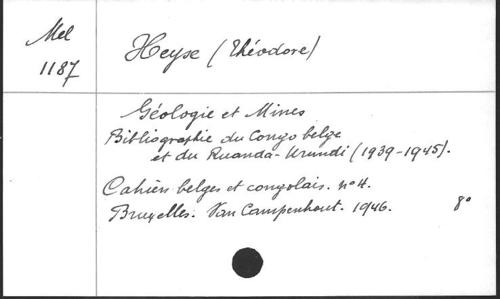 Mel
1187
Heyse (Théodore)
Géologie et Mines
Bibliographie du Congo belge
et du Ruanda-Urundi (1939-1945).
Cahiers belges et congolais. n° 4.
Bruxelles. Van Campenhout. 1946. 8°